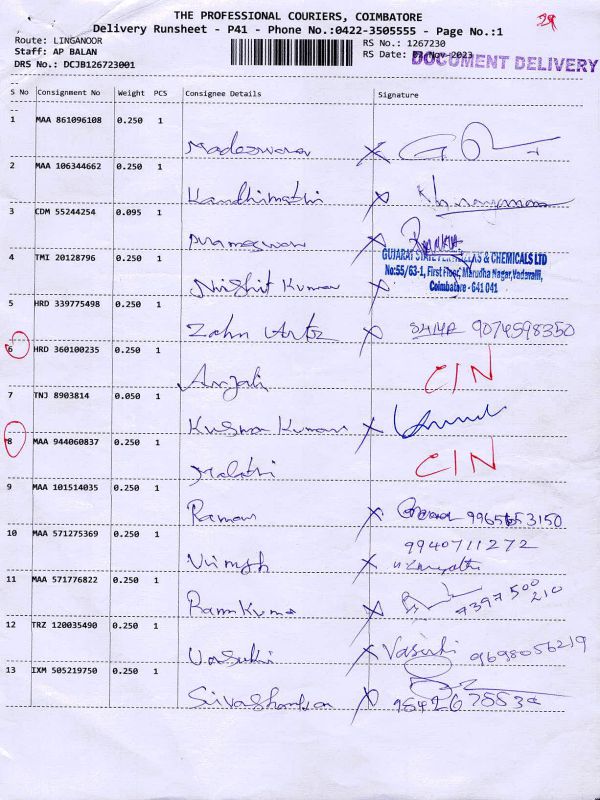 29
THE PROFESSIONAL COURIERS, COIMBATORE
Delivery Runsheet - P41 - Phone No.:0422-3505555 - Page No.:1
Route: LINGANOOR RS No.: 1267230
Staff: AP BALAN RS Date: Nov-2023
DRS No.: DCJB126723001 DOCUMENT DELIVERY
S No Consignment No Weight PCS Consignee Details Signature
1 MAA 861096108 0.250 1 Madeswaran X
2 MAA 106344662 0.250 1 Kandhimathi X
3 CDM 55244254 0.095 1 Prameswari X
GUJARAT STATE & CHEMICALS LTD
4 TMI 20128796 0.250 1 Nishit Kumar X No:55/63-1, First Floor, Marudha Nagar, Vadavalli,
Coimbatore - 641 041
5 HRD 339775498 0.250 1 Zahn Artz X 9074598350
6 HRD 360100235 0.250 1 Anjali C/N
7 TNJ 8903814 0.050 1 Kusma Kumari X
8 MAA 944060837 0.250 1 Malathi C/N
9 MAA 101514035 0.250 1 Raman X
10 MAA 571275369 0.250 1 Vimsh X 9940711272
11 MAA 571776822 0.250 1 Ramkumar X 7397500210
12 TRZ 120035490 0.250 1 Vasuki X Vasuki 9698056219
13 IXM 505219750 0.250 1 Sivashankar X